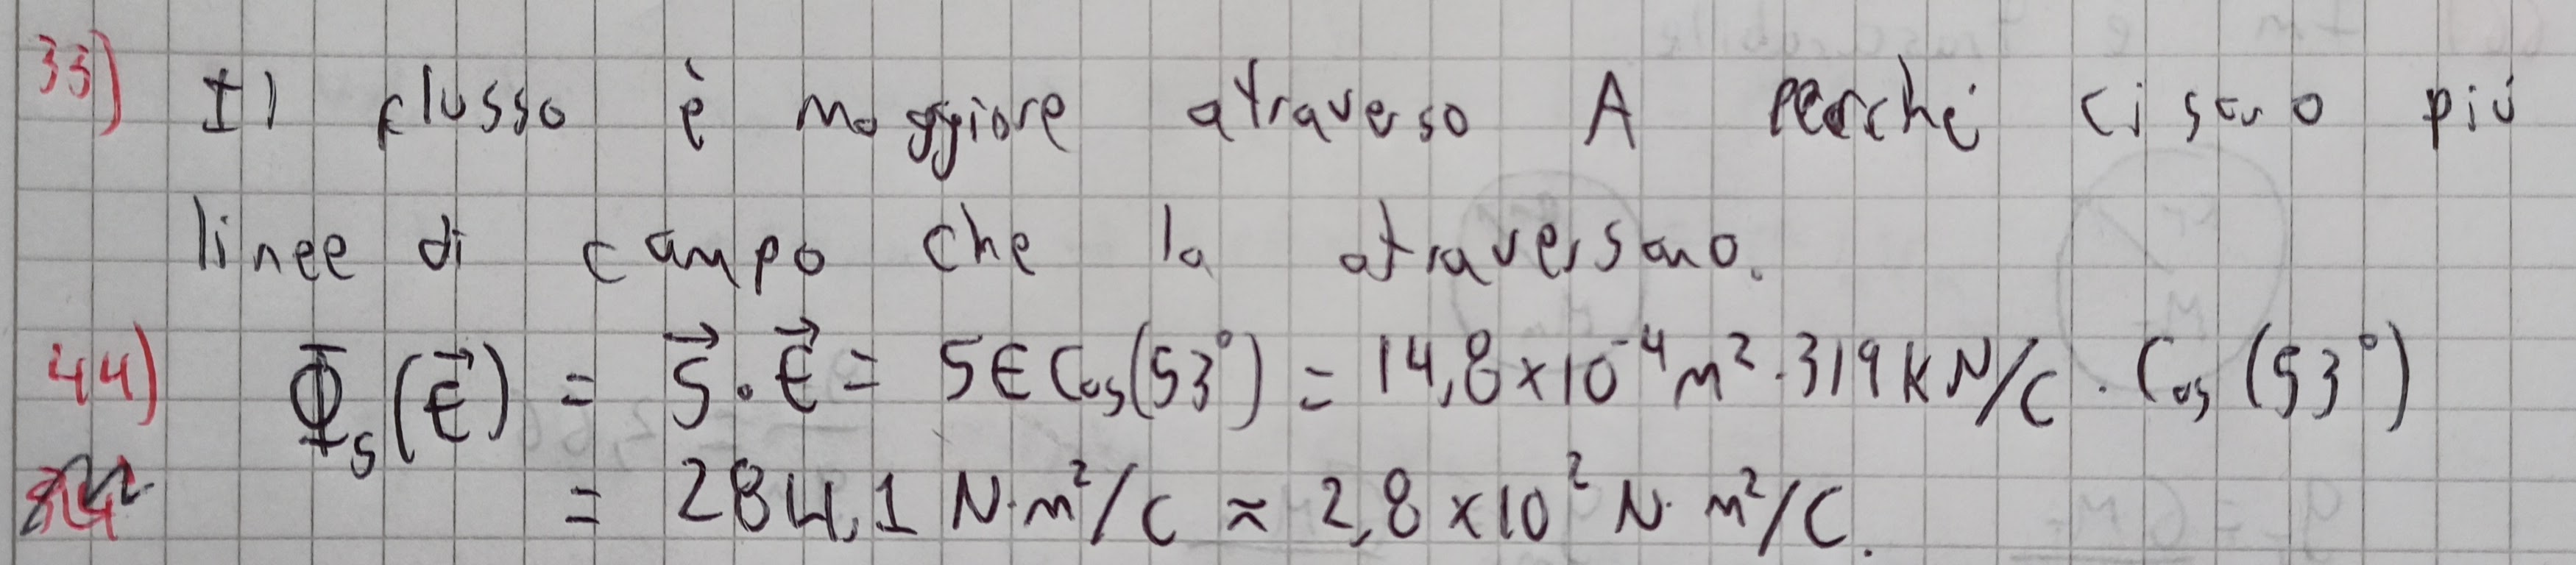 33) Il flusso è maggiore atraverso A perché ci sono più
linee di campo che la atraversano.
44) Φ_S(E⃗) = S⃗ · E⃗ = SE Cos(53°) = 14,8×10⁻⁴ m² · 319 kN/C · Cos(53°)
= 284,1 N·m²/C ≈ 2,8 ×10² N·m²/C.